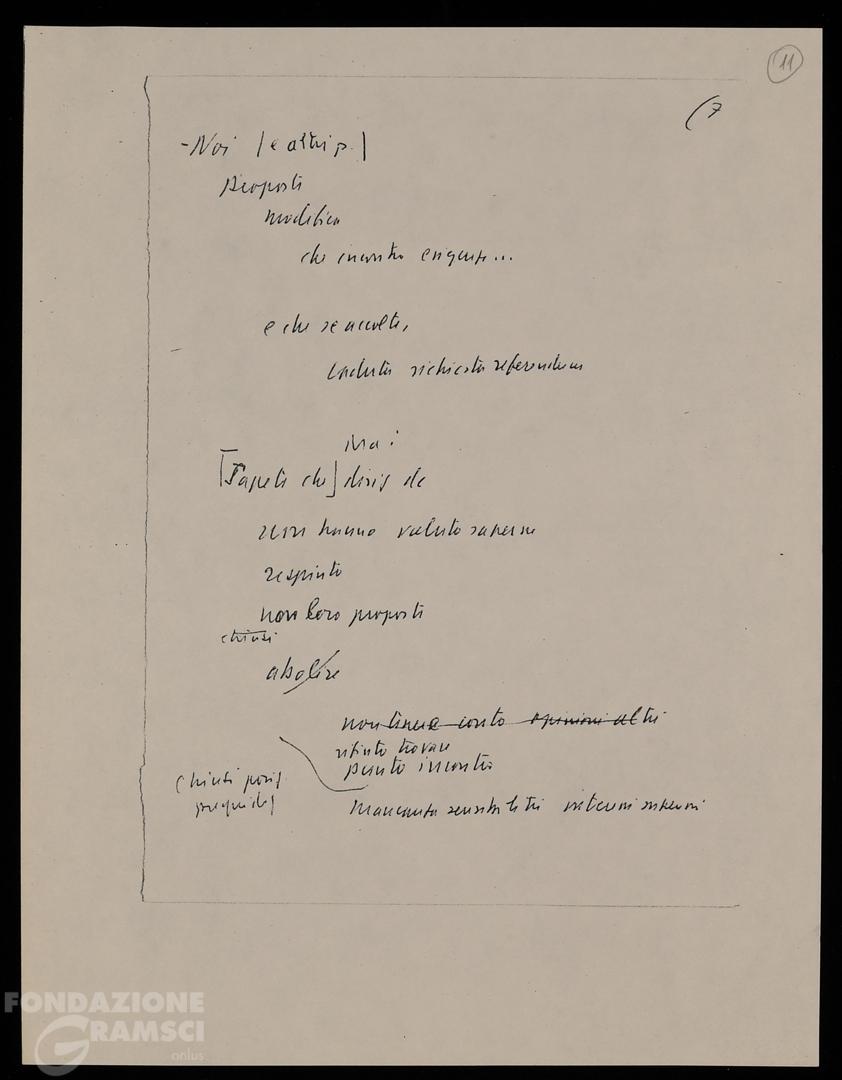 11
(7
- Noi (e altri p.)
Proposte
modifica
che incontra esigenze...
e che se accolte,
caduta richiesta referendum
Ma:
[Sapete che] dirig dc
non hanno voluto saperne
respinto
non loro proposte
chiusi
abolire
non tenere conto opinioni altri
rifiuto trovare
punto incontro
(chiusi posiz.
pregiud)
Mancanza sensibilità interessi supremi
FONDAZIONE
GRAMSCI
onlus